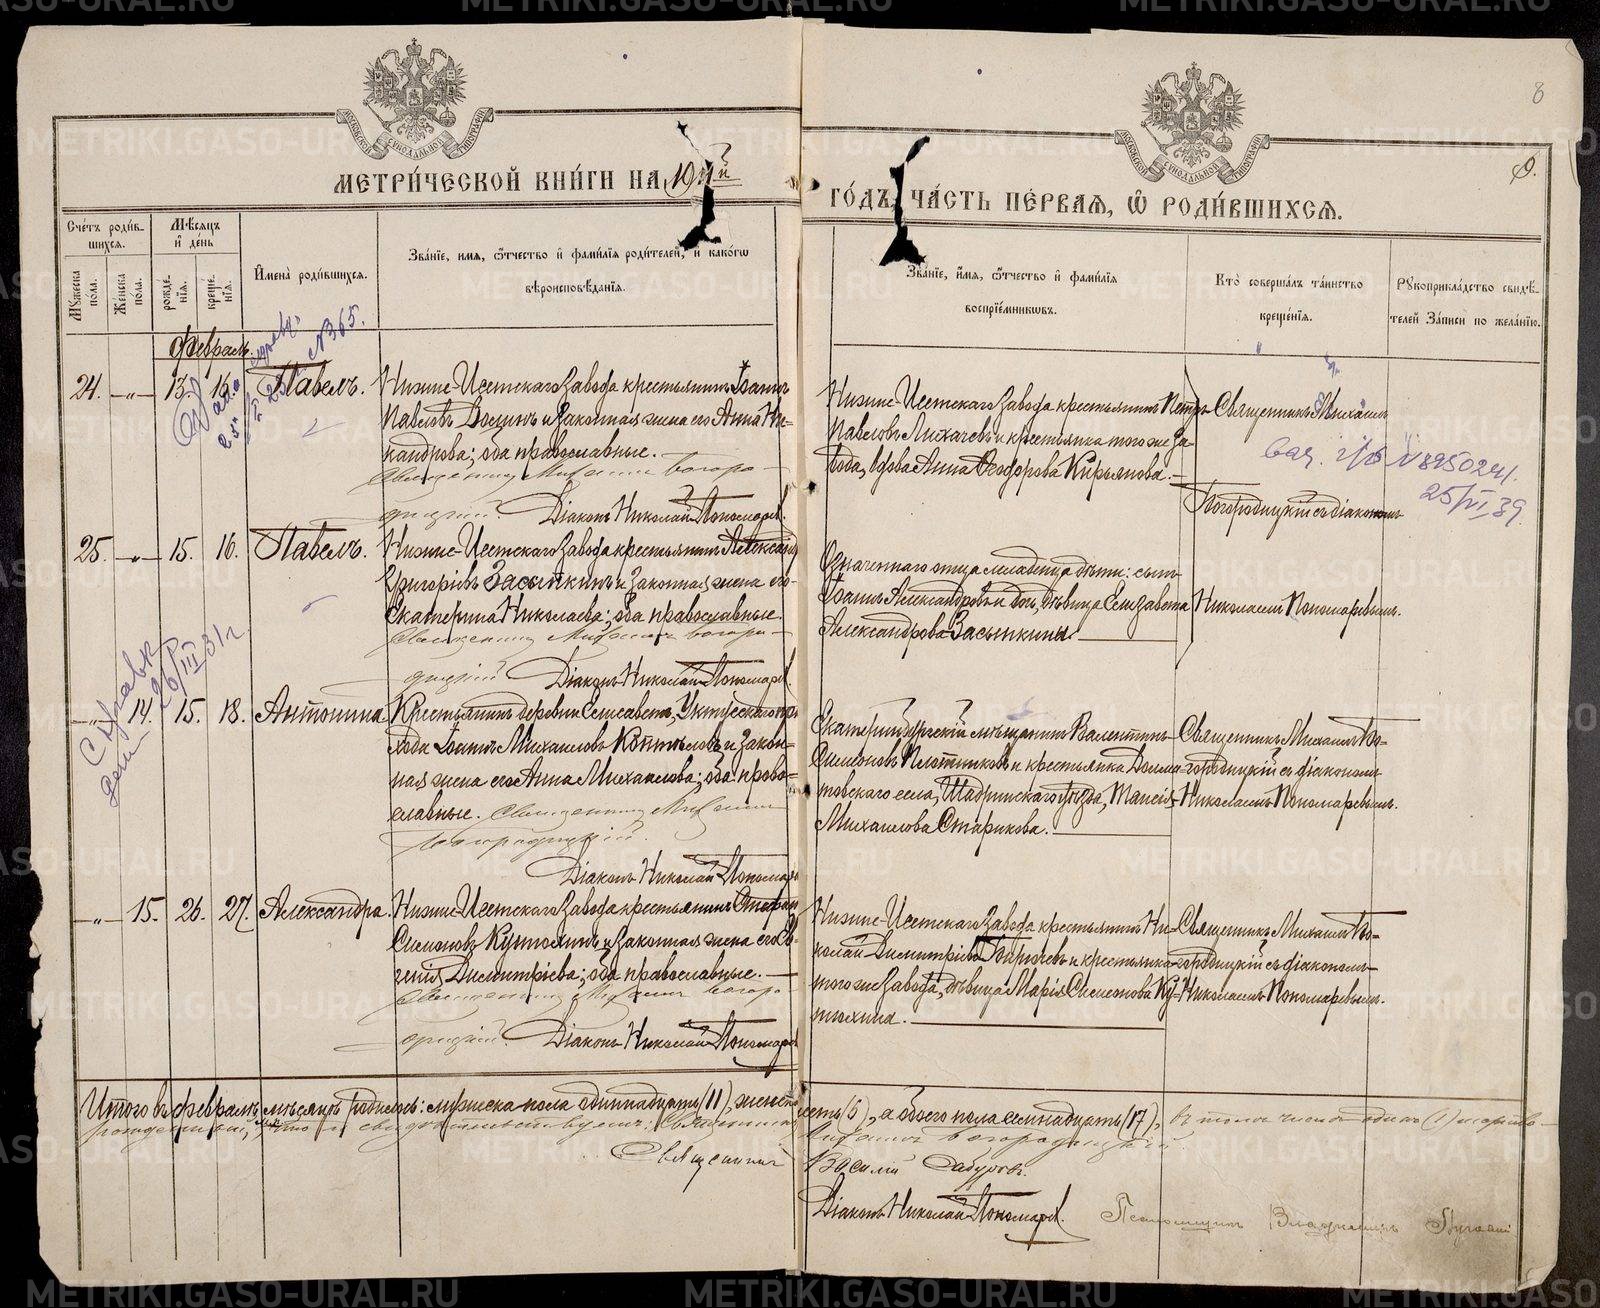 МЕТРИ́ЧЕСКОЙ КНИ́ГИ НА
ГО́ДЪ, ЧА́СТЬ ПЕ́РВАЯ, Ѽ РОДИ́ВШИХСЯ.
8
МОСКОВСКОЙ СѴНОДАЛЬНОЙ ТИПОГРАФІИ
МОСКОВСКОЙ СѴНОДАЛЬНОЙ ТИПОГРАФІИ
Сче́тъ роди́вшихся.
Мужеска пола.
Же́нска пола.
Мѣ́сяцъ и де́нь
рожде́нїя.
креще́нїя.
Имена̀ роди́вшихся.
Зва́нїе, имя, ѻ́тчество и фами́лїя роди́телей, и како́гѡ
вѣроисповѣ́данїя.
Зва́нїе, имя, ѻ́тчество и фами́лїя
воспрїе́мникѡвъ.
Кто̀ соверша́лъ та́инство
креще́нїя.
Рукоприкла́дство свидѣ́телей за́писи по жела́нїю.
Февраль.
№ 365.
24. —„— 13. 16. Павелъ.
Нижне-Исетскаго завода крестьянинъ Іоаннъ
Павловъ и законная жена его Анна Никандрова; оба православные.
Священникъ Михаилъ Богородицкій. Діаконъ Николай Пономаревъ.
Нижне-Исетскаго завода крестьянинъ Петръ
Павловъ Лихачевъ и крестьянка того же завода, вдова Анна Ѳеодорова Кирьянова.
Священникъ Михаилъ
Богородицкій съ діакономъ
Николаемъ Пономаревымъ.
25/VI 39
25. —„— 15. 16. Павелъ.
Нижне-Исетскаго завода крестьянинъ Александръ
Григорьевъ Засыпкинъ и законная жена его
Екатерина Николаева; оба православные.
Священникъ Михаилъ Богородицкій Діаконъ Николай Пономаревъ
Означеннаго отца младенца дѣти: сынъ
Іоаннъ Александровъ и дочь, дѣвица Елизавета
Александрова Засыпкины.
Справк
26/III 31 г
—„— 14. 15. 18. Антонина
Крестьянинъ деревни Елисаветъ, Уктусскаго
Іоаннъ Михаиловъ и законная жена его Анна Михаилова; оба православные. Священникъ Михаилъ
Богородицкій.
Діаконъ Николай Пономаревъ
Екатеринбургскій мѣщанинъ Валентинъ
Симеоновъ Плотниковъ и крестьянка Долматовскаго села, Шадринскаго уѣзда, Таисія
Михаилова Старикова.
Священникъ Михаилъ Богородицкій съ діакономъ
Николаемъ Пономаревымъ.
—„— 15. 26. 27. Александра.
Нижне-Исетскаго завода крестьянинъ Стефанъ
Симеоновъ Кутюхинъ и законная жена его Евгенія Димитріева; оба православные.
Священникъ Михаилъ Богородицкій. Діаконъ Николай Пономаревъ
Нижне-Исетскаго завода крестьянинъ Николай Димитріевъ и крестьянка
того же завода, дѣвица Марія Симеонова Кутюхина.
Священникъ Михаилъ Богородицкій съ діакономъ
Николаемъ Пономаревымъ.
Итого въ февралѣ мѣсяцѣ родилось: мужеска пола одиннадцать (11), женска шесть (6), а обоего пола семнадцать (17),
Михаилъ Богородицкій
Священникъ Василій
Діаконъ Николай Пономаревъ.
Псаломщикъ Владиміръ